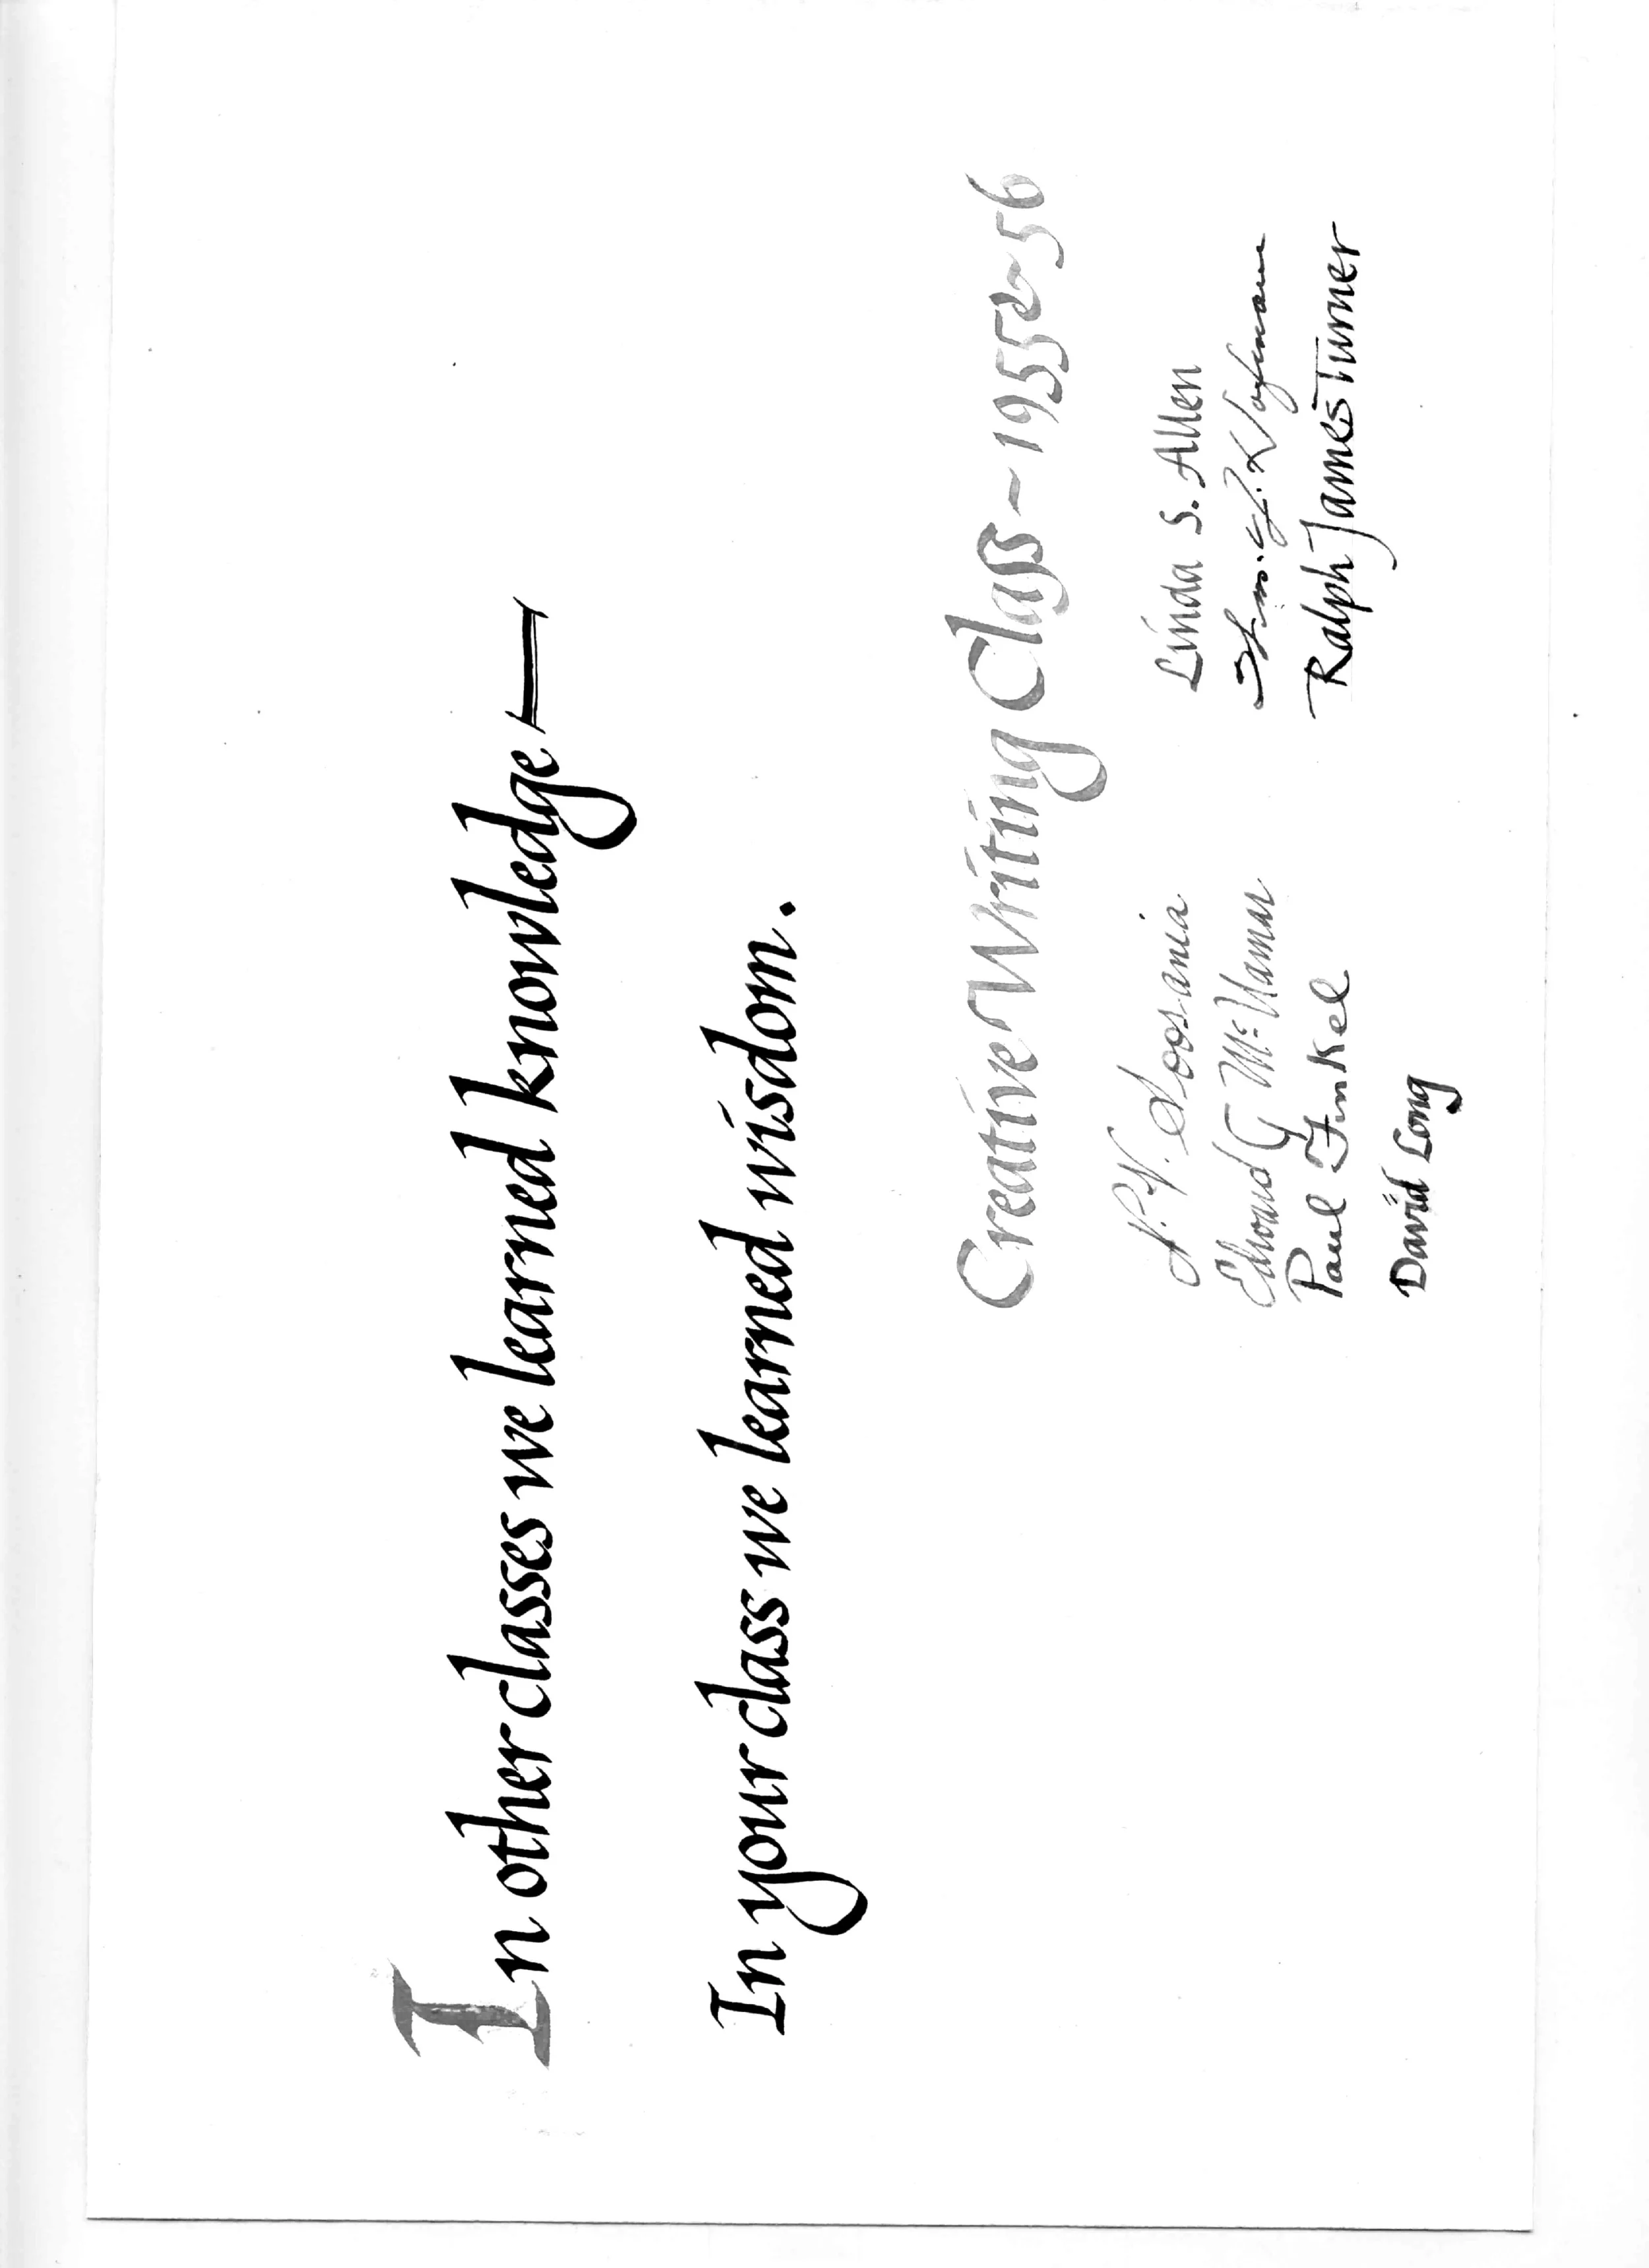 In other classes we learned knowledge—
In your class we learned wisdom.
Creative Writing Class ~ 1955 & 56
Linda S. Allen
Ralph James Turner
N. N. Soosania
Edward G McNamar
Paul Finkel
David Long